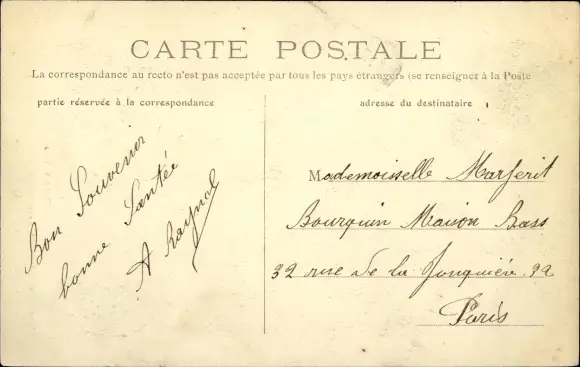 CARTE POSTALE
La correspondance au recto n'est pas acceptée par tous les pays étrangers (se renseigner à la Poste
partie réservée à la correspondance
adresse du destinataire
Bon Souvenir
bonne Santée
A Raynal
Mademoiselle Margerit
Bourquin Maison Bass
32 rue de la Jonquière 32
Paris